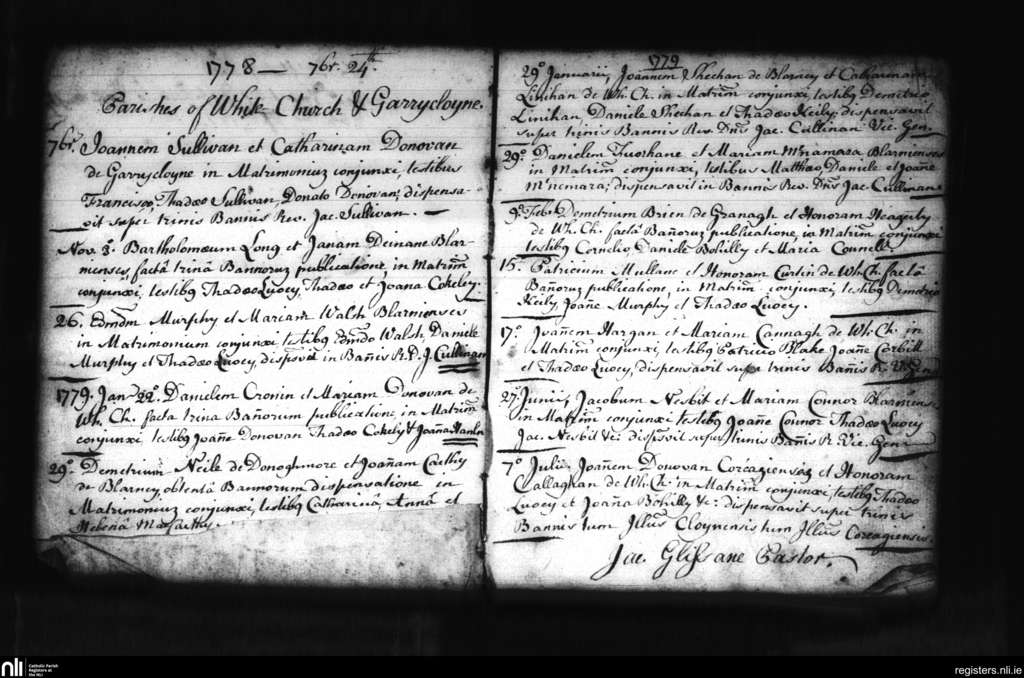 1778 — 7br. 24th
Parishes of White Church & Garrycloyne.
7br. Joannem Sullivan et Catharinam Donovan
de Garrycloyne in Matrimonium conjunxi, testibus
Francisco, Thadæo Sullivan, Donato Donovan; dispensa-
vit super trinis Bannis Rev. Jac. Sullivan. —
Nov. 3. Bartholomæum Long et Janam Deinane Blar-
nienses, factâ trinâ Bannorum publicatione, in Matrim̄
conjunxi, testibq Thadæo Luoey, Thadæo et Joana Cokeley.
26. Edmdm Murphy et Mariam Walsh Blarnienses
in Matrimonium conjunxi testibq Edmdo Walsh, Daniele
Murphy et Thadæo Luoey, dispsvit in Bañis R.D. J. Cullinan
1779. Janr 22º. Danielem Cronin et Mariam Donovan de
Wh. Ch. facta trina Bañorum publicatione, in Matrim̄
conjunxi testibq Joañe Donovan Thadæo Cokely & Joaña
29º. Demetrium Neile de Donoghmore et Joañam Carthy
de Blarney, obtentâ Bannorum dispensatione in
Matrimonium conjunxi, testibq Catharinâ, Annâ et
Helena MacCarthy.
1779
29º Januarii, Joannem Sheehan de Blarney et Catharinam
Linihan de Wh. Ch. in Matrim̄ conjunxi, testibq Demetrio
Linihan, Daniele Sheehan et Thadæo Keily; dispensavit
super trinis Bannis Rev. Dn̄s Jac. Cullinan Vic. Gen.
29º. Danielem Twohane et Mariam McNamara Blarnienses
in Matrim̄ conjunxi, testibus Matthæo, Daniele et Joañe
McNemara; dispensavit in Bannis Rev. Dn̄s Jac. Cullinan
9º Febr. Demetrium Brien de Granagh et Honoram Heagerty
de Wh. Ch. factâ Bañoruz publicatione, in Matrim̄ conjunxi
testibq Cornelio, Daniele Bohilly et Maria Connell.
15. Patricium Mullane et Honoram Curtin de Wh. Ch. factâ
Bañoruz publicatione, in Matrim̄ conjunxi, testibq Demetrio
Keily, Joañe Murphy et Thadæo Luoey.
17º. Joañem Hargan et Mariam Cannagh de Wh. Ch. in
Matrim̄ conjunxi, testibq Patricio Blake Joañe Corbitt
et Thadæo Luoey, dispensavit super trinis Bañis R.
27. Junii, Jacobum Nesbit et Mariam Connor Blarniens.
in Matrim̄ conjunxi testibq Joañe Connor Thadæo Luoey
Jac. Nesbit &c: dispsvit super trinis Bañis R. Vic. Gen
7º Julii Joañem Donovan Corcagiensez et Honoram
Callaghan de Wh. Ch. in Matrim̄ conjunxi, testibq Thadæo
Luoey et Joaña Bohilly &c: dispensavit super trinis
Bannis tum Illus Cloynensis tum Illus Corcagiensis.
Jac. Glissane Pastor.
nli
Catholic Parish
Registers at
the NLI
registers.nli.ie